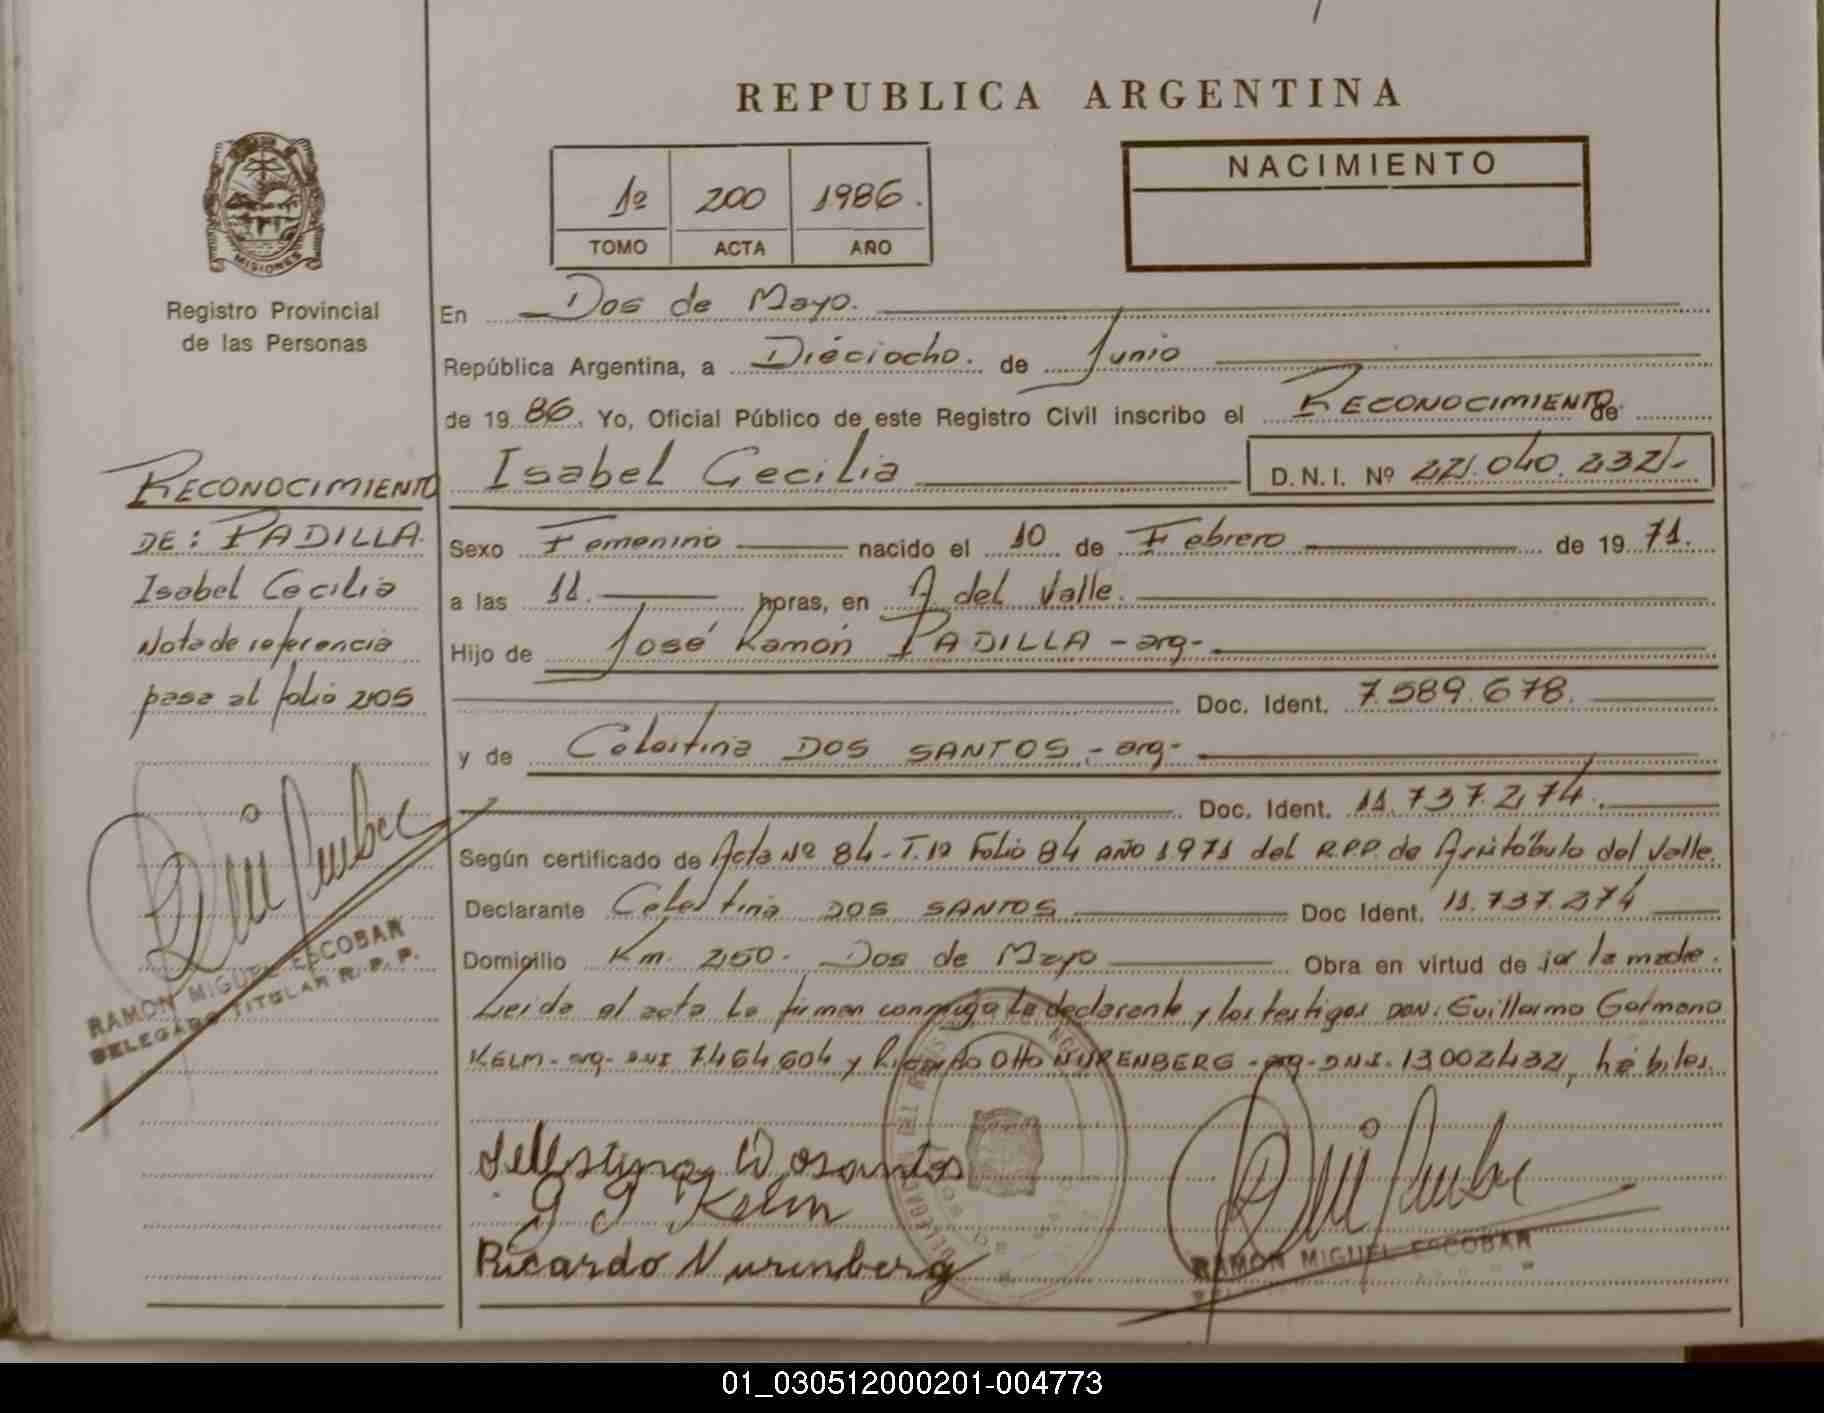 REPUBLICA ARGENTINA
1º 200 1986.
TOMO ACTA AÑO
NACIMIENTO
MISIONES
Registro Provincial
de las Personas
RECONOCIMIENTO
DE: PADILLA.
Isabel Cecilia
Nota de referencia
pasa al folio 205
RAMON MIGUEL ESCOBAR
DELEGADO TITULAR R. P. P.
En Dos de Mayo.
República Argentina, a Dieciocho. de Junio
de 19 86. Yo, Oficial Público de este Registro Civil inscribo el RECONOCIMIENTO de
Isabel Cecilia D.N.I. Nº 22.040.232.-
Sexo Femenino nacido el 10 de Febrero de 19 71.
a las 11. horas, en A. del Valle.
Hijo de José Ramón PADILLA - arg-
Doc. Ident. 7.589.678.
y de Celestina DOS SANTOS. - arg-
Doc. Ident. 11.737.274.
Según certificado de Acta Nº 84 - T. 1º Folio 84 AÑO 1971 del R.P.P. de Aristóbulo del Valle.
Declarante Celestina DOS SANTOS Doc Ident. 11.737.274
Domicilio Km. 250. Dos de Mayo Obra en virtud de ser la madre.
Leida el acta la firman conmigo la declarante y los testigos DON: Guillermo Germano
KELM - arg - DNI 7464604 y Ricardo Otto NURENBERG - arg - DNI. 13002432, hábiles.
Sellestina Dosantos
G G Kelm
Ricardo Nurenberg
RAMON MIGUEL ESCOBAR
01_030512000201-004773